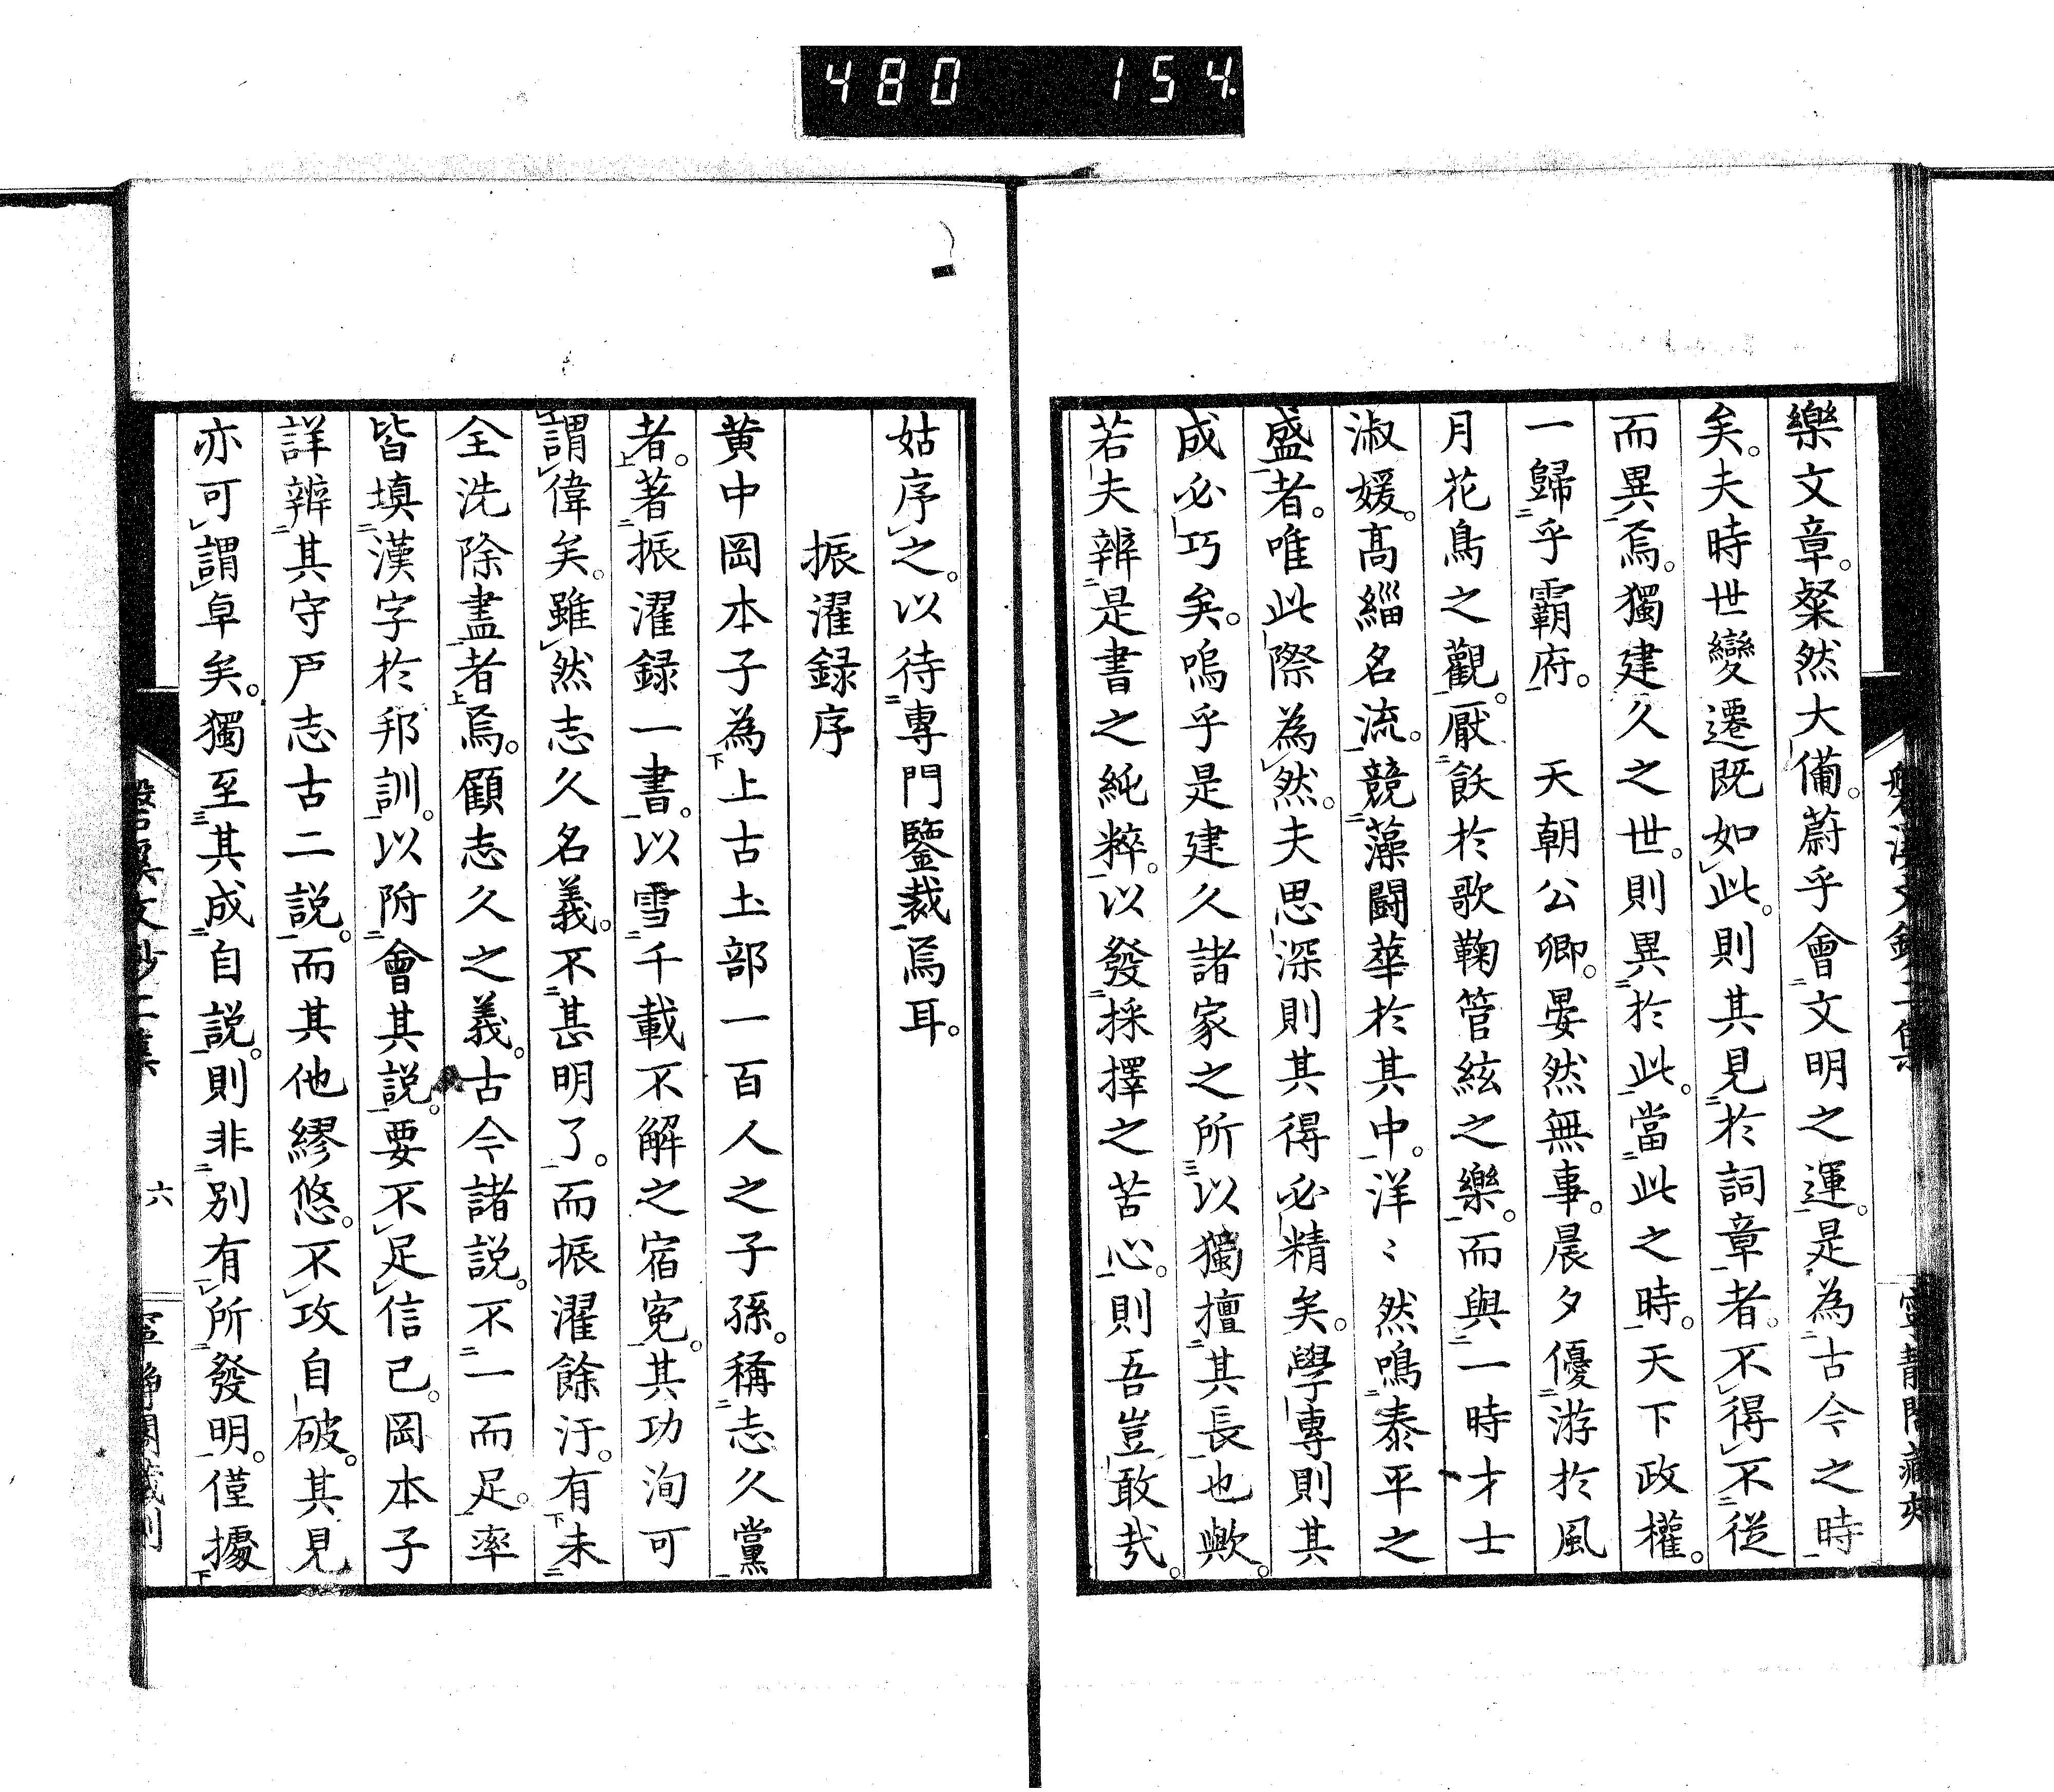 480 154
樂文章。粲然大備。蔚乎會文明之運。是為古今之時
矣。夫時世變遷既如此。則其見於詞章者。不得不從
而異焉。獨建久之世。則異於此。當此之時。天下政權。
一歸乎霸府。天朝公卿。晏然無事。晨夕優游於風
月花鳥之觀。厭飫於歌鞠管絃之樂。而與一時才士
淑媛。高緇名流。競藻闘華於其中。洋〻然鳴泰平之
盛者。唯此際為然。夫思深則其得必精矣。學專則其
成必巧矣。嗚乎是建久諸家之所以獨擅其長也歟。
若夫辨是書之純粹。以發採擇之苦心。則吾豈敢哉。
姑序之。以待專門鑒裁焉耳。
振濯録序
黄中岡本子為上古土部一百人之子孫。稱志久黨
者。著振濯録一書。以雪千載不解之宿冤。其功洵可
謂偉矣。雖然志久名義。不甚明了。而振濯餘汙。有未
全洗除盡者焉。顧志久之義。古今諸説。不一而足。率
皆填漢字於邦訓。以附會其説。要不足信已。岡本子
詳辨其守戸志古二説。而其他繆悠。不攻自破。其見
亦可謂卓矣。獨至其成自説。則非別有所發明。僅據
六